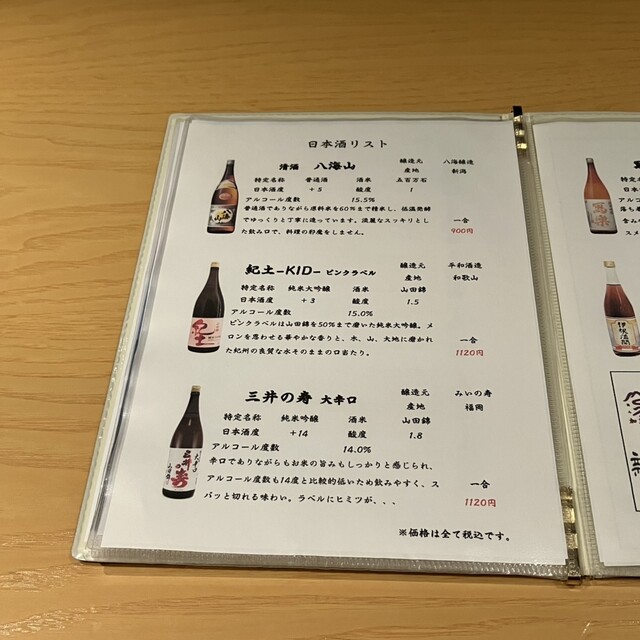 日本酒リスト
清酒 八海山 醸造元 八海醸造
産地 新潟
特定名称 普通酒 酒米 五百万石
日本酒度 +5 酸度 1
アルコール度数 15.5%
普通酒でありながら原料米を60%まで精米し、低温発酵
でゆっくりと丁寧に造っています。淡麗なスッキリとし
た飲み口で、料理の邪魔をしません。
一合
900円
紀土-KID- ピンクラベル 醸造元 平和酒造
産地 和歌山
特定名称 純米大吟醸 酒米 山田錦
日本酒度 +3 酸度 1.5
アルコール度数 15.0%
ピンクラベルは山田錦を50%まで磨いた純米大吟醸。メ
ロンを思わせる華やかな香りと、木、山、大地に磨かれ
た紀州の良質な水そのままの口当たり。
一合
1120円
三井の寿 大辛口 醸造元 みいの寿
産地 福岡
特定名称 純米吟醸 酒米 山田錦
日本酒度 +14 酸度 1.8
アルコール度数 14.0%
辛口でありながらもお米の旨みもしっかりと感じられ、
アルコール度数も14度と比較的低いため飲みやすく、ス
パッと切れる味わい。ラベルにヒミツが、、、
一合
1120円
※価格は全て税込です。
八海山
紀土
三井の寿
寫楽
伊根満開
落ち着
スメ